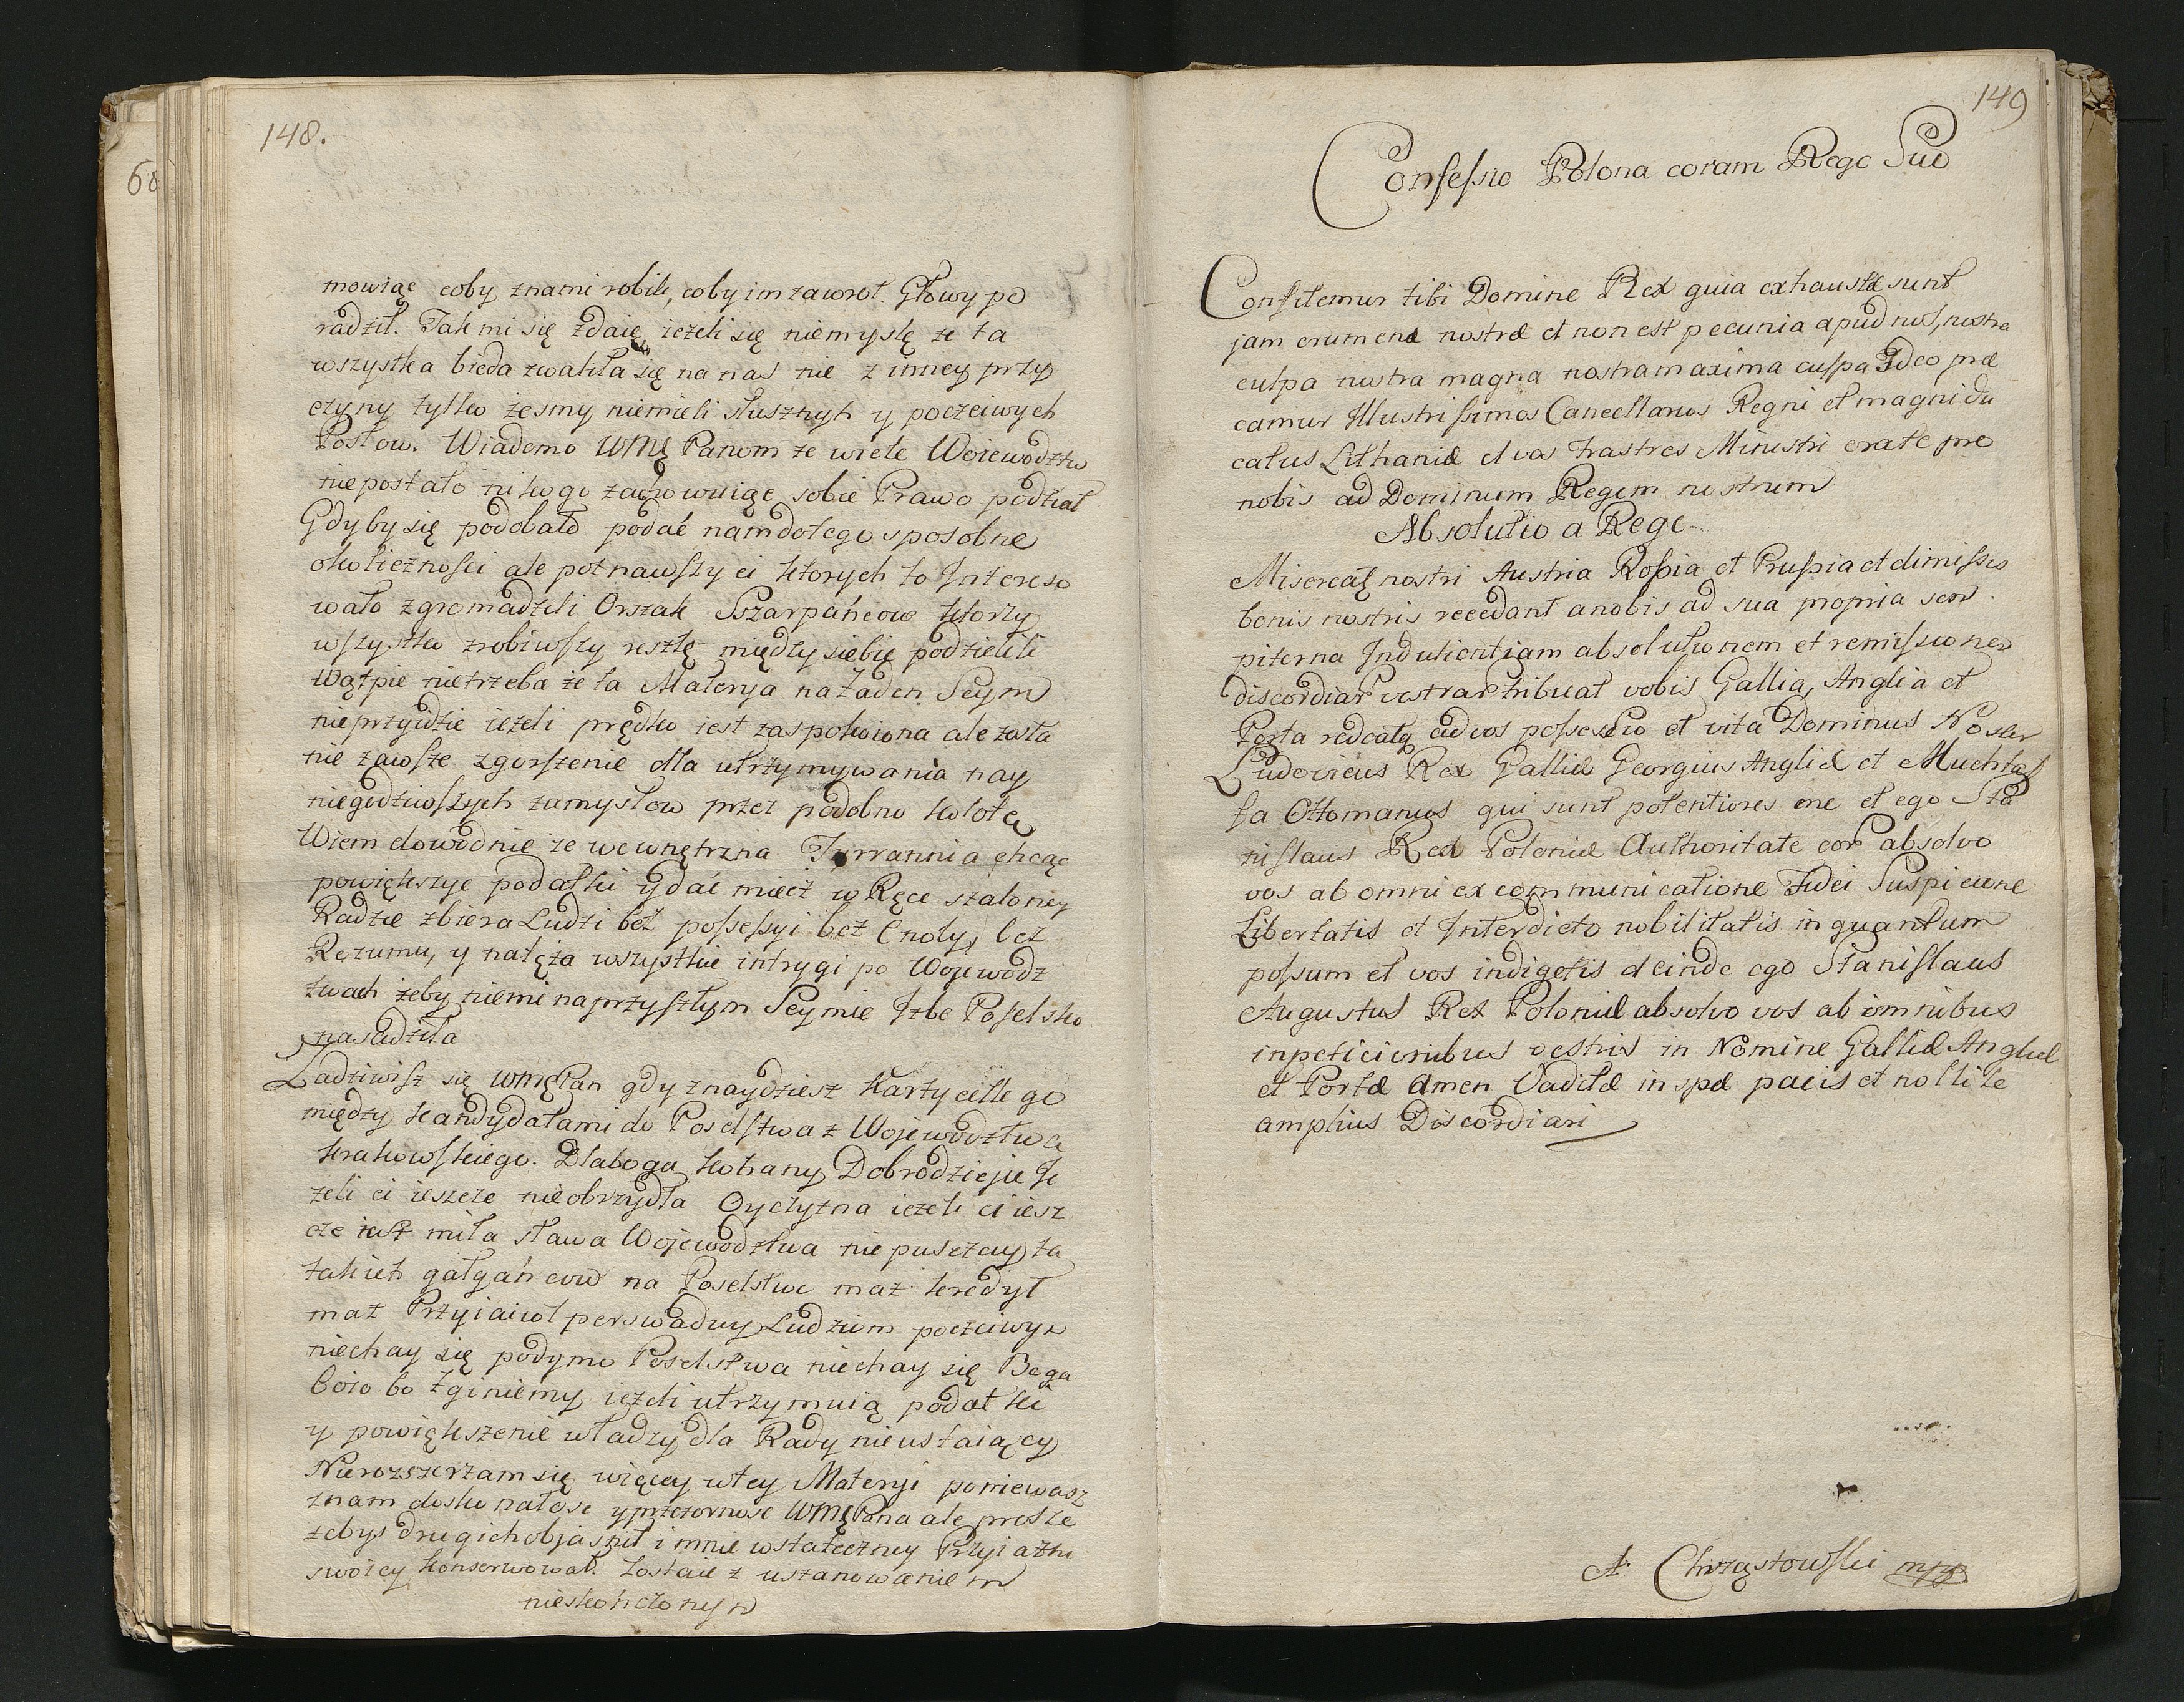 148.
mowiąc coby znami robili, coby im zawrot Głowy po
radził. Tak mi się zdaie, ieżeli się niemylę że ta
wszystka bieda zwaliła się na nas nie z inney przy
czyny tylko żesmy niemieli słusznych y poczciwych
Posłow. Wiadomo WMĘ Panom że wiele Woiewodztw
nieposłało nikogo zachowuiąc sobie Prawo podział
Gdyby się podobało podać namdołego sposobne
okoliczności ale poznawszy ci ktorych to Intereso
wało zgromadzili Orszak Szarpańcow ktorzy
wszystko zrobiwszy resztę między siebię podzielili
Wątpić nietrzeba że ta Materya na żaden Seym
nieprzyidzie ieżeli prędko iest zaspokoiona ale zosta
nie zawsze zgorszenie dla utrzymywania nay
niegodziwszych zamysłow przez podobno hołotę
Wiem dowodnie że wewnętrzna Tyrrannia chcąc
powiększyc podatki y dać miecz w Ręce szaloney
Radzie zbiera Ludzi bez possessyi bez Cnoty, bez
Rozumu, y natęża wszystkie intrygi po Wojewodz
twach żeby niemi naprzyszłym Seymie Izbe Poselsko
nasadziła
Zadziwisz się WMĘPan gdy znaydziesz Karzyckiego
między kandydatami do Poselstwa z Wojewodztwa
krakowskiego. Dlaboga kohany Dobrodzieju Je
żeli ci ieszcze nieobrzydła Oyczyzna ieżeli ci iesz
cze iest miła sława Wojewodztwa nie puszczay ta
takich gałgańcow na Poselstwo maż kredyt
maż Przyiaiciol perswaduy Ludziom poczciwym
niechay się podymo Poselstwa niechay się Boga
boio bo zginiemy ieżeli utrzymuią podatki
y powiększenie władzy dla Rady nieustaiący
Nierozszerzam się więcey wtey Materyi poniewasz
znam doskonałosc yprzezornosc WMĘPana ale prosze
żebys drugich objasnił i mnie wstateczney Przyiazni
swoiey konserwował. Zostaie z uszanowaniem
nieskończonym
149
Confessio Polona coram Rege Suo
Confitemur tibi Domine Rex quia exhaustæ sunt
jam crumenæ nostræ et non est pecunia apud nos, nostra
culpa nostra magna nostra maxima culpa Ideo præ
camur Illustrissimos Cancellarios Regni et magni du
catus Lithaniæ et vos trastres Ministri orate pro
nobis ad Dominum Regem nostrum
Absolutio a Rege
Misereatę nostri Austria Rossia et Prussia et dimissis
bonis nostris recedant anobis ad sua propria sem
piterna Indulientiam absolutionem et remissionem
discordiar vestrar tribuat vobis Gallia, Anglia et
Porta redeatq ad vos possessio et vita Dominus Noster
Ludovicus Rex Galliæ Georgius Angliæ et Muchta
fa Ottomanus qui sunt potentiores me et ego Sta
nislaus Rex Poloniæ Authoritate eor absolvo
vos ab omni excommunicatione Fidei Suspicione
Libertatis et Interdicto nobilitatis in quantum
possum et vos indigetis deinde ego Stanislaus
Augustus Rex Poloniæ absolvo vos ab omnibus
inpeticionibus vestris in Nomine Galliæ Angliæ
et Portæ Amen Vaditæ in spæ pacis et nollite
amplius Discordiari
A Chrząstowski mpp